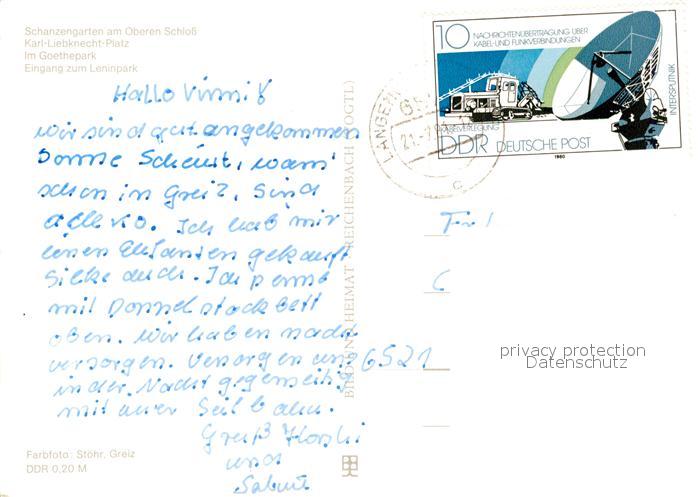 Schanzengarten am Oberen Schloß
Karl-Liebknecht-Platz
Im Goethepark
Eingang zum Leninpark
Hallo
wir sind gut angekommen
Sonne Scheint, waren
schon in Greiz, Sind
alle k.o. Ich hab mir
einen Elefanten gekauft
Silke auch. Ich penne
mit Doppelstockbett
oben. Wir haben
versorgen. Versorgen uns
in der Nacht gegenseitig
mit einer Seilbahn.
Gruß
und
Farbfoto: Stöhr, Greiz
DDR 0,20 M
BILD UND HEIMAT REICHENBACH (VOGTL)
10 NACHRICHTENÜBERTRAGUNG ÜBER
KABEL-UND FUNKVERBINDUNGEN
INTERSPUTNIK
KABELVERLEGUNG
DDR DEUTSCHE POST
1980
21.
c
6521
privacy protection
Datenschutz